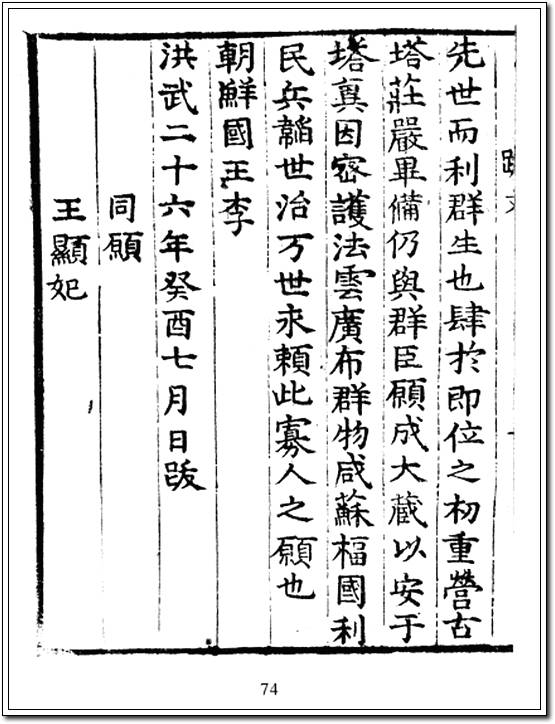 先世而利群生也肆扵即位之初重營古
塔莊嚴畢備仍與群臣願成大藏以安于
塔冀因密護法雲廣布群物咸蘇福國利
民兵韜世治万世永賴此寡人之願也
朝鮮國王李
洪武二十六年癸酉七月日跋
同願
王顯妃
74